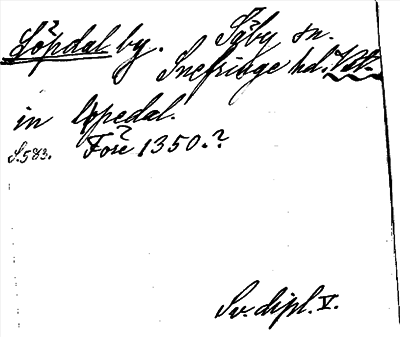 Löpdal by. Täby sn.
Snefringe hd. Vstm.
in lopedal.
S. 583. Före 1350.?
Sv. dipl. V.